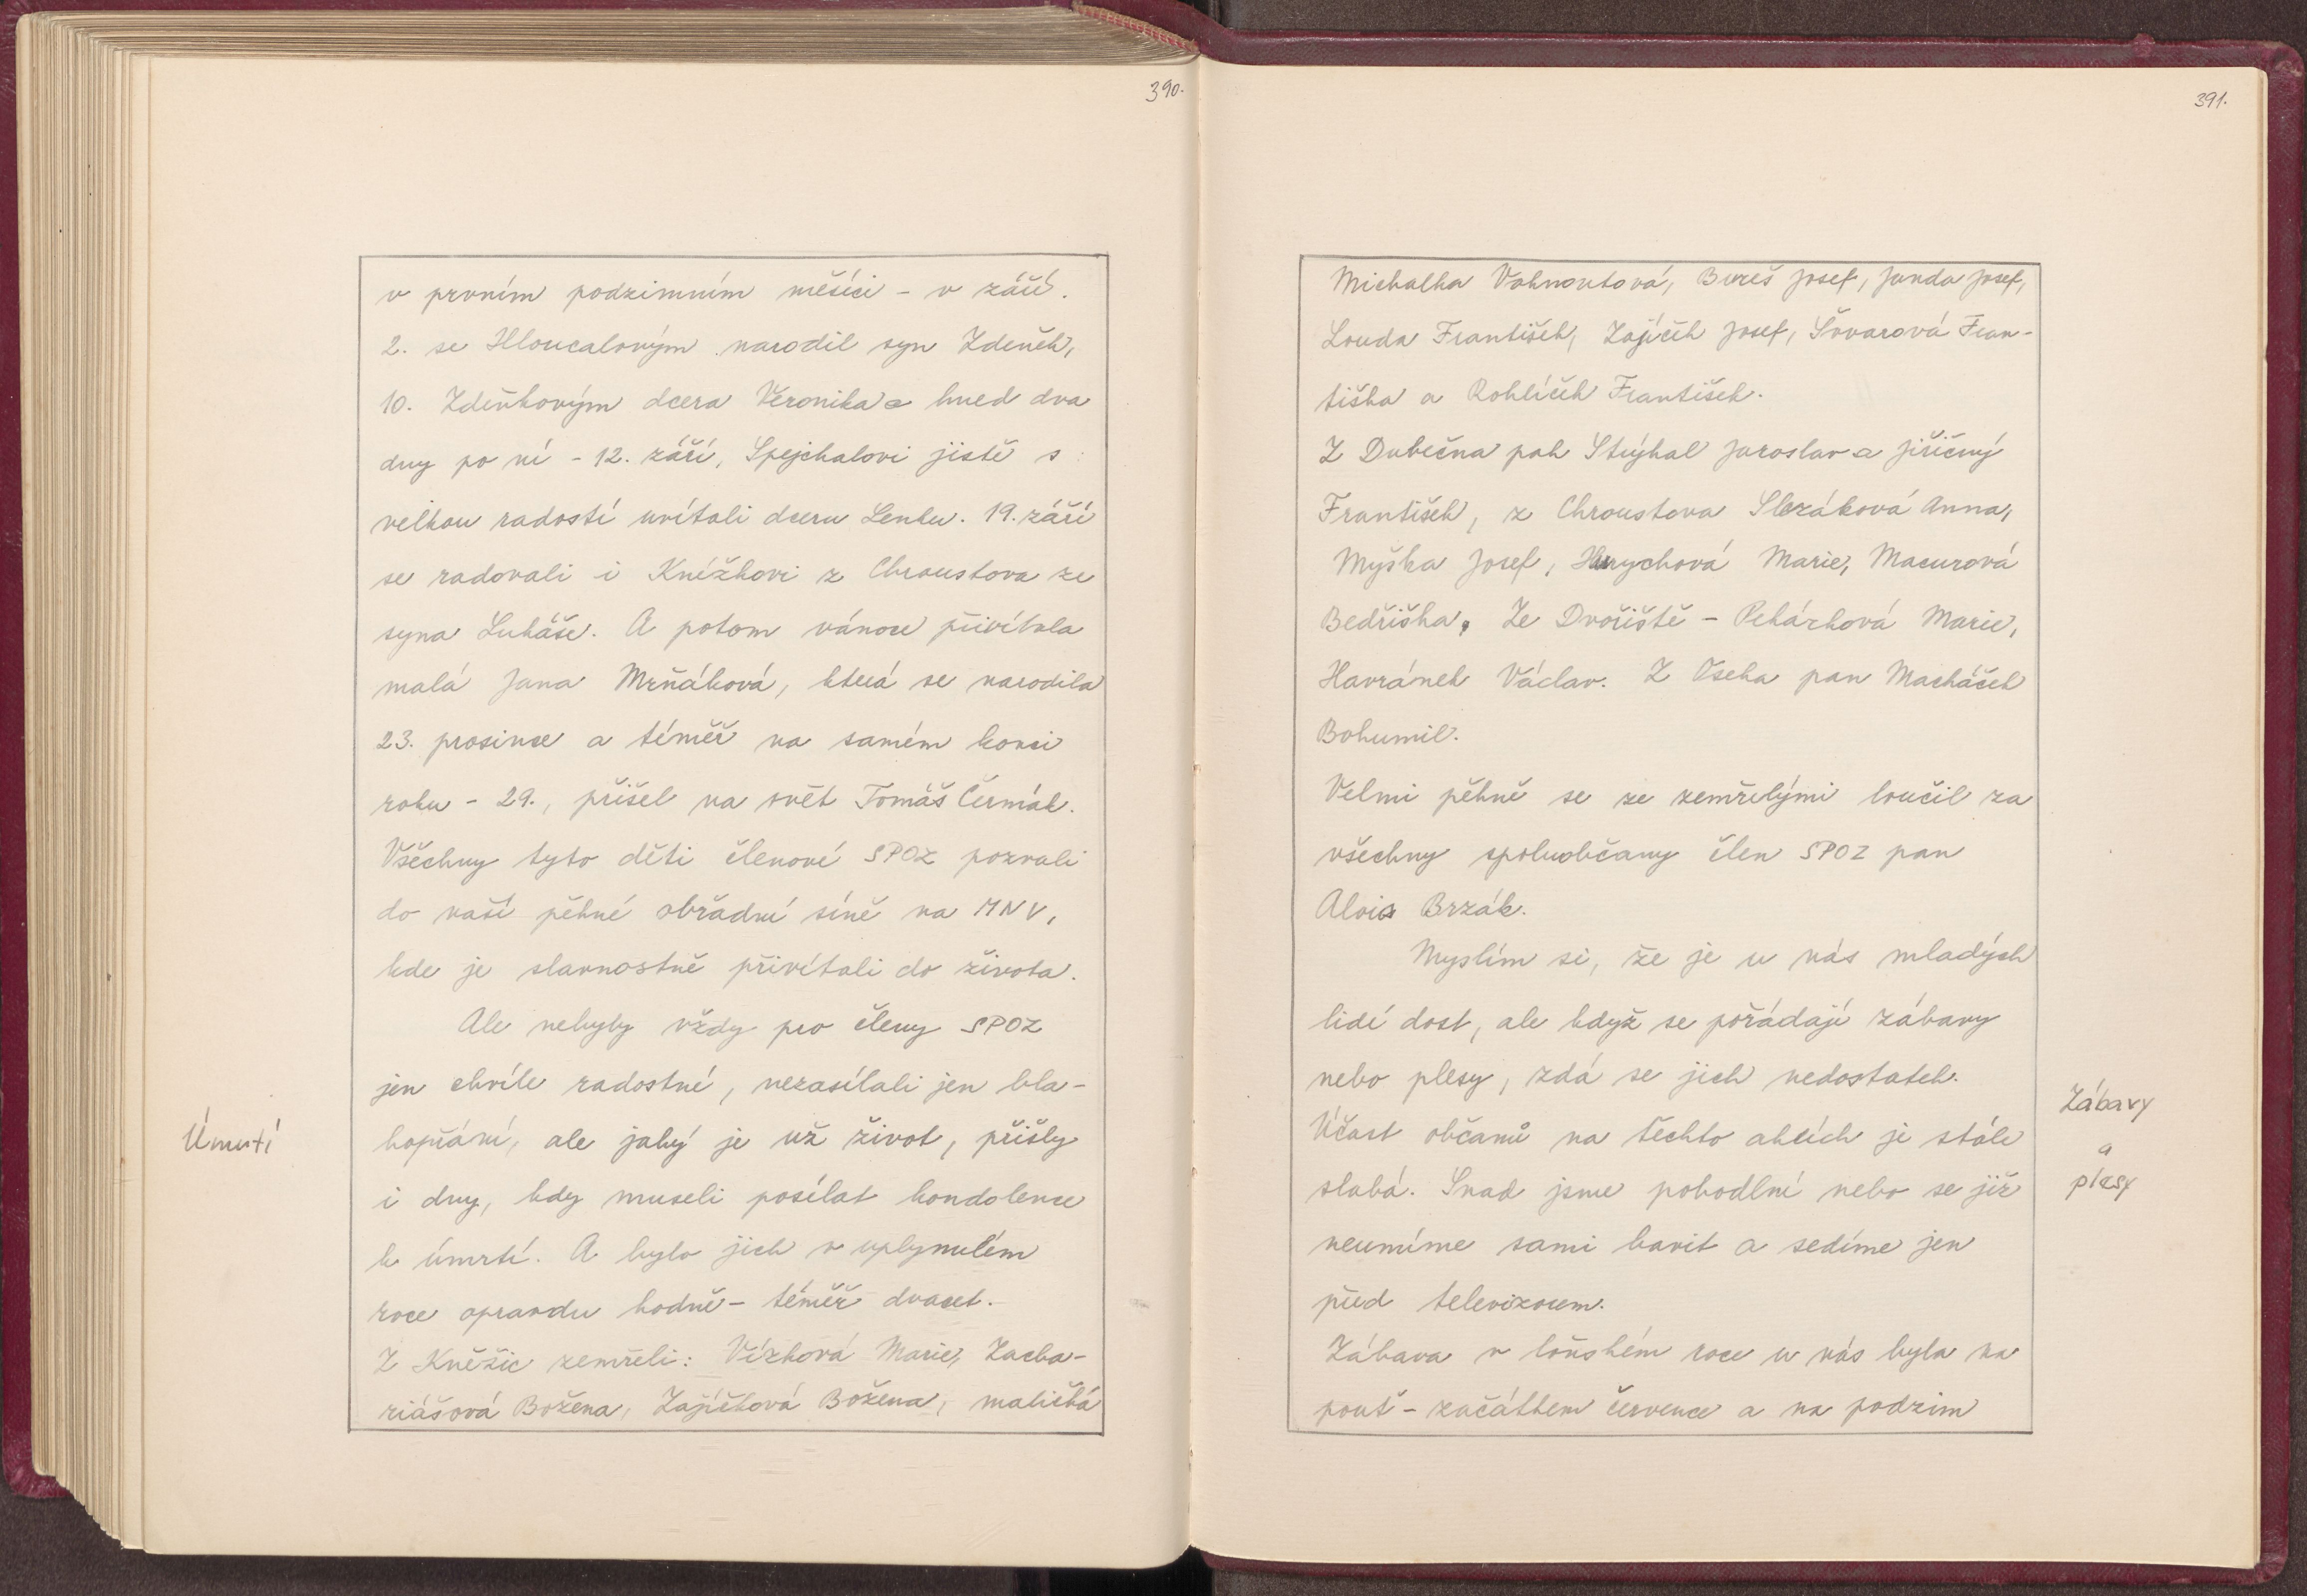 390.
v prvním podzimním měsíci - v září.
2. se Hloucalovým narodil syn Zdeněk,
10. Zdeňkovým dcera Veronika a hned dva
dny po ní - 12. září, Spejchalovi jistě s
velkou radostí uvítali dceru Lenku. 19. září
se radovali i Kněžkovi z Chroustova ze
syna Lukáše. A potom vánoce přivítala
malá Jana Mrňáková, která se narodila
23. prosince a téměř na samém konci
roku - 29., přišel na svět Tomáš Čermák.
Všechny tyto děti členové SPOZ pozvali
do naší pěkné obřadní síně na MNV,
kde je slavnostně přivítali do života.
Ale nebyly vždy pro členy SPOZ
jen chvíle radostné, nezasílali jen bla-
Úmrtí
hopřání, ale jaký je už život, přišly
i dny, kdy museli posílat kondolence
k úmrtí. A bylo jich v uplynulém
roce opravdu hodně - téměř dvacet.
Z Kněžic zemřeli: Vízková Marie, Zacha-
riášová Božena, Zajíčková Božena, maličká
391.
Michalka Vohnoutová, Bureš Josef, Janda Josef,
Louda František, Zajíček Josef, Šovarová Fran-
tiška a Rohlíček František.
Z Dubečna pak Strýhal Jaroslav a Jiřičný
František, z Chroustova Slezáková Anna,
Myška Josef, Hrychová Marie, Macurová
Bedřiška. Ze Dvořiště - Pekárková Marie,
Havránek Václav. Z Oseka pan Macháček
Bohumil.
Velmi pěkně se ze zemřelými loučil za
všechny spoluobčany člen SPOZ pan
Alois Brzák.
Myslím si, že je u nás mladých
lidí dost, ale když se pořádají zábavy
nebo plesy, zdá se jich nedostatek.
Zábavy
a
plesy
Účast občanů na těchto akcích je stále
slabá. Snad jsme pohodlní nebo se již
neumíme sami bavit a sedíme jen
před televizorem.
Zábava v loňském roce u nás byla na
pouť - začátkem července a na podzim